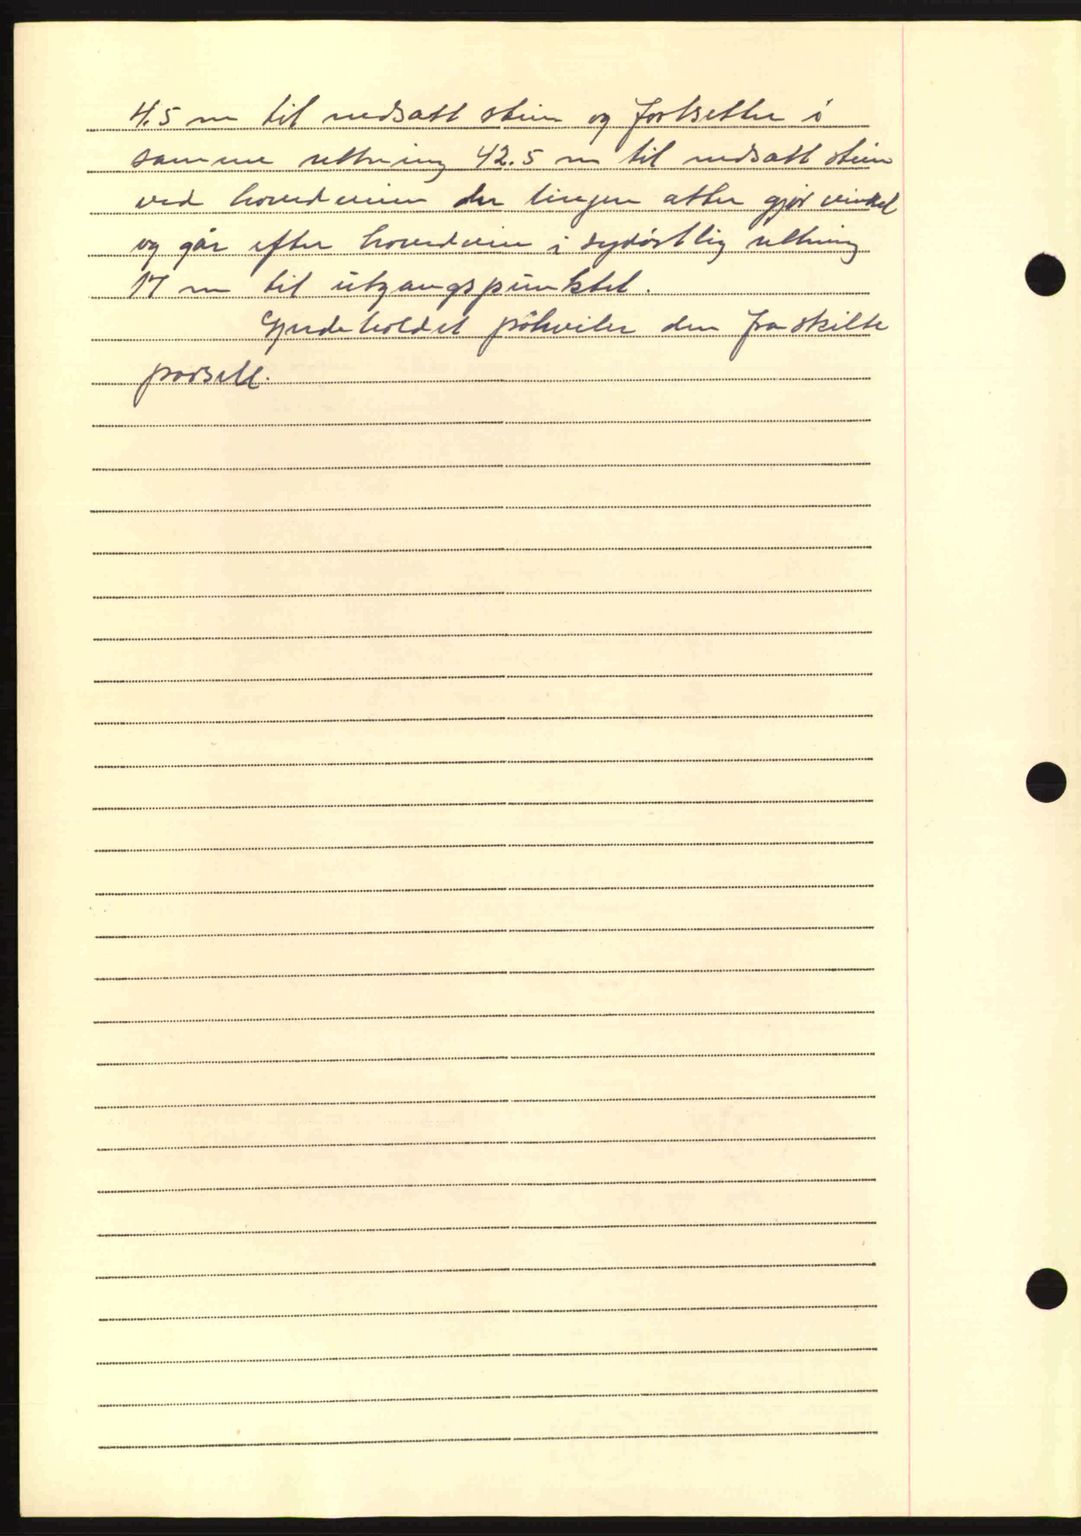 4.5 m til nedsatt stein og fortsetter i
samme retning 42.5 m til nedsatt stein
ved hovedveien der linjen atter gjør vinkel
og går efter hovedveien i sydøstlig retning
17 m til utgangspunktet.
Gjerdeholdet påhviler den fraskilte
parsell.